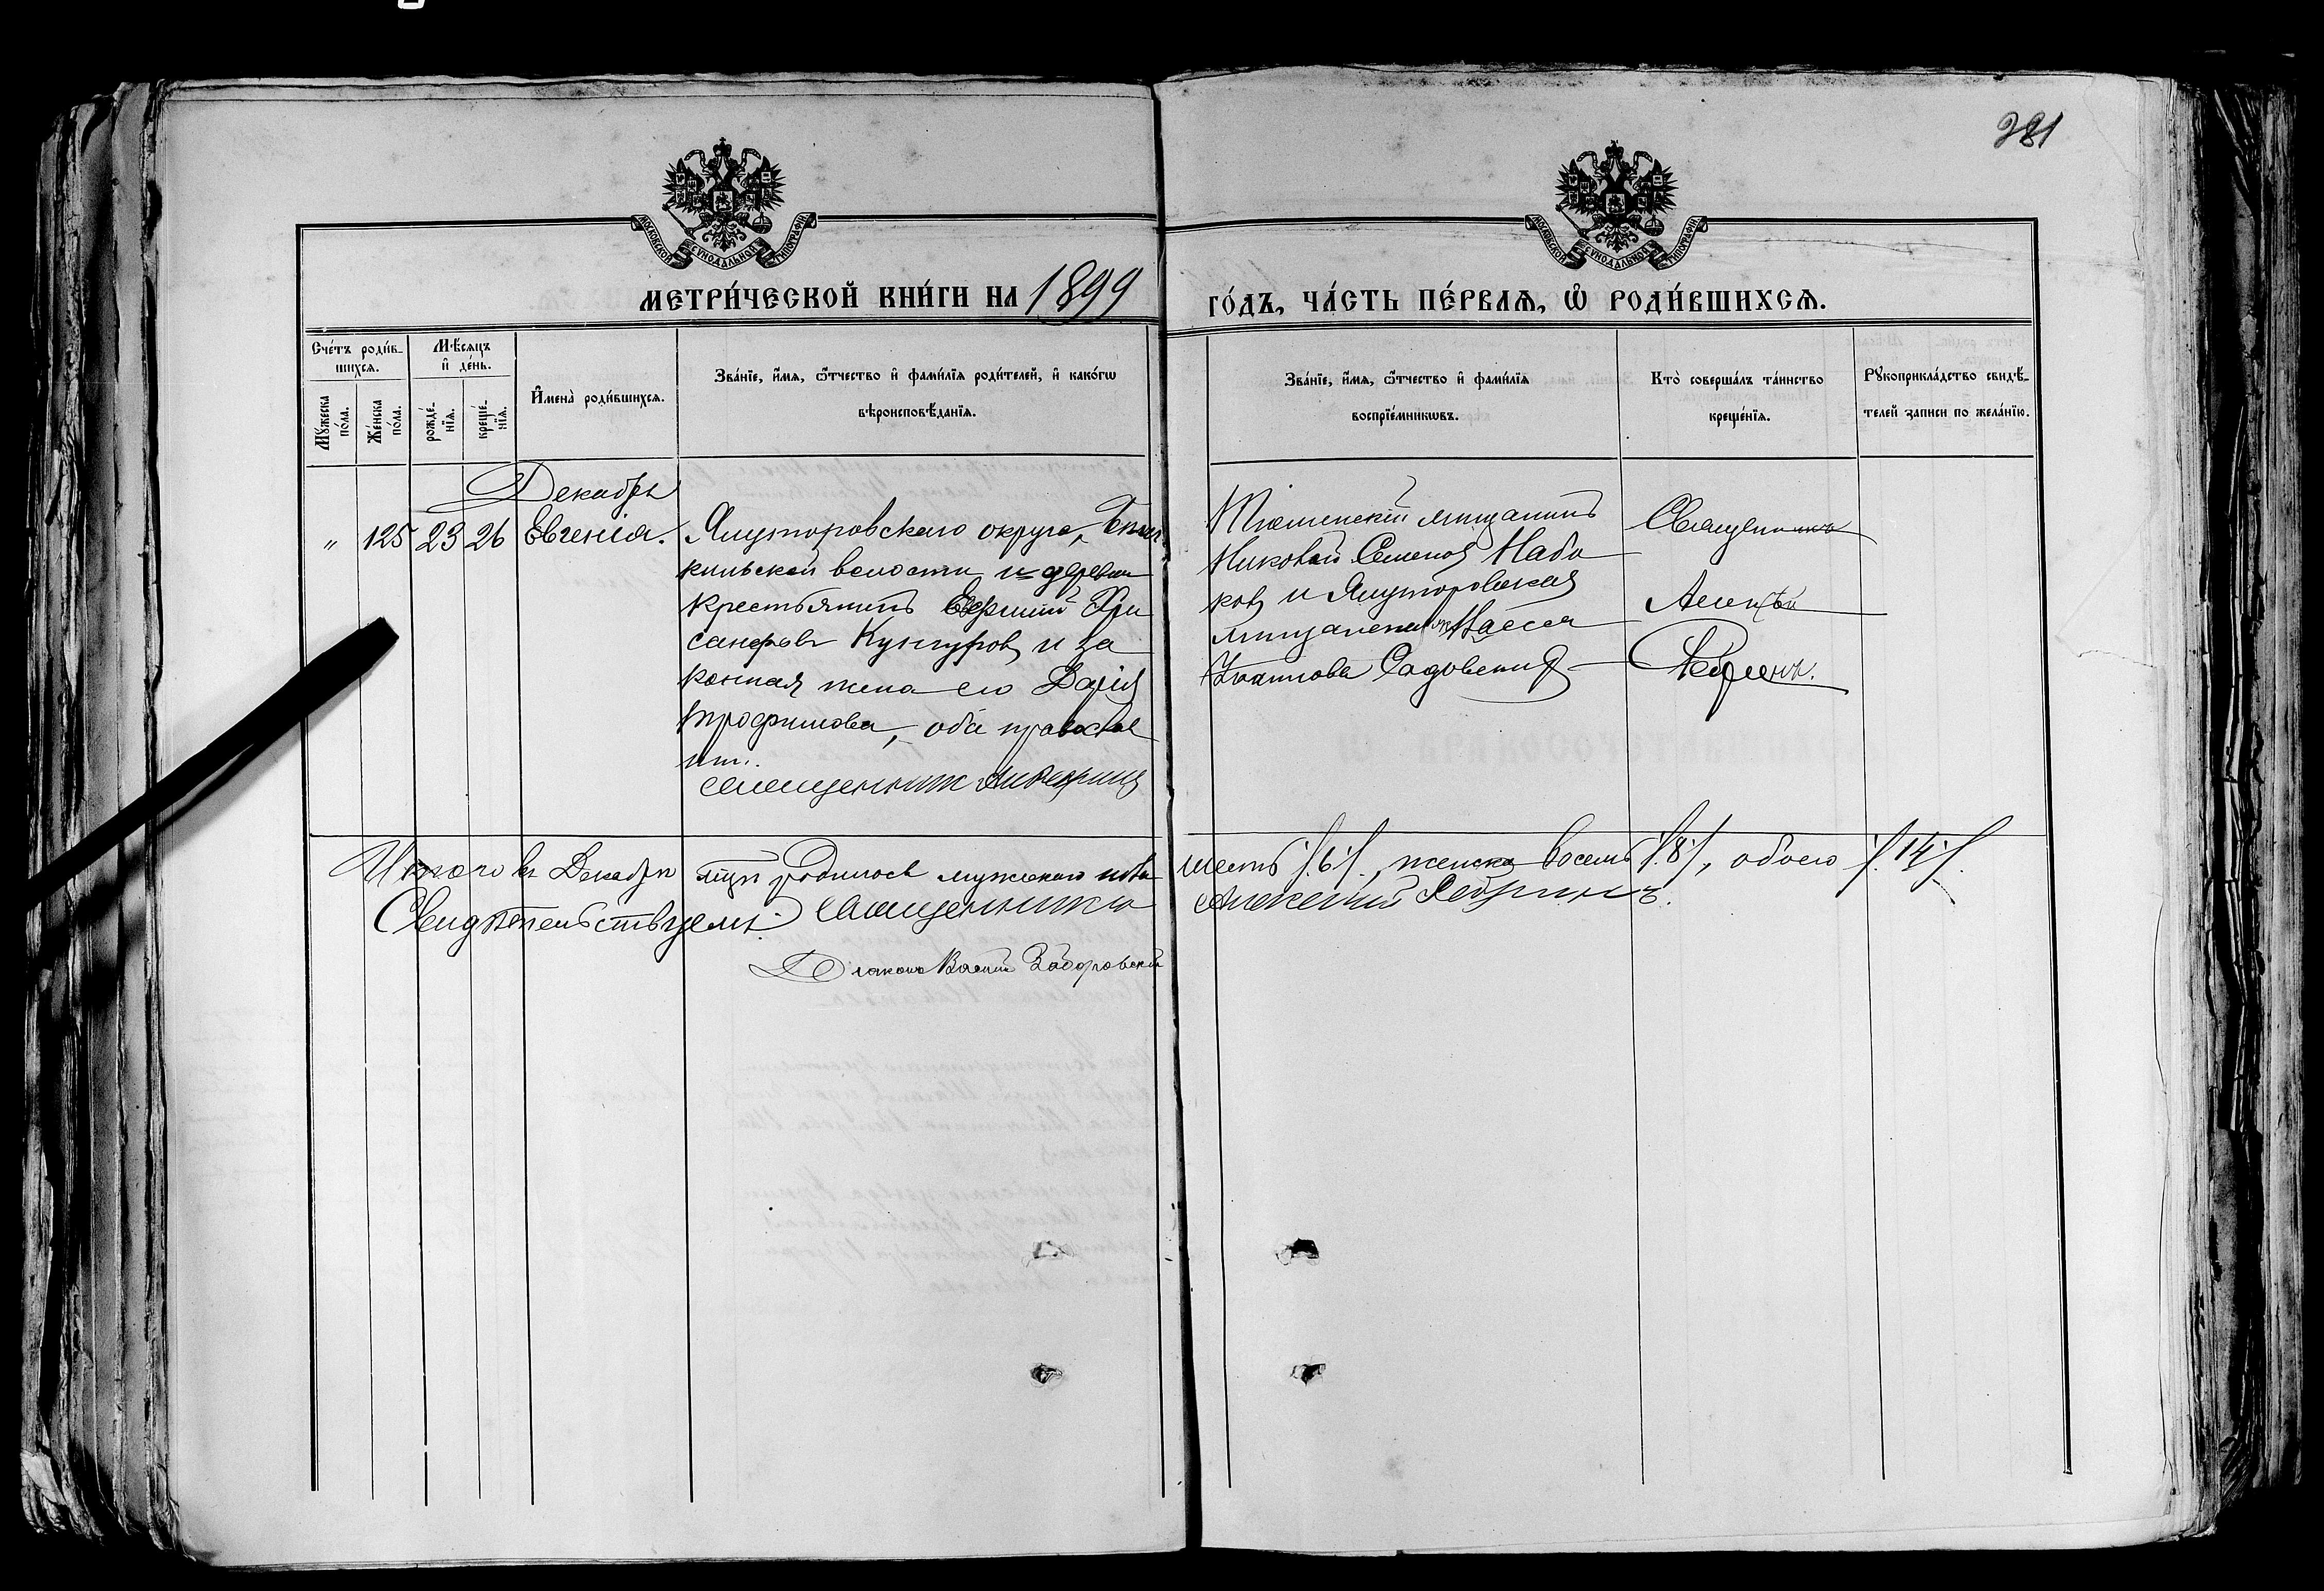 281
МОСКОВСКОЙ СУНОДАЛЬНОЙ ТИПОГРАФІИ
МОСКОВСКОЙ СУНОДАЛЬНОЙ ТИПОГРАФІИ
МЕТРИ́ЧЕСКОЙ КНИ́ГИ НА 1899
ГО́ДЪ, ЧА́СТЬ ПЕ́РВАЯ, Ѽ РОДИ́ВШИХСЯ.
Сче́тъ роди́в-
шихся.
Мꙋ́жеска пола.
Же́нска пола.
Мѣ́сяцъ
и҆ де́нь.
рожде́-
нїя.
креще́-
нїя.
И҆мена̀ роди́вшихся.
Зва́нїе, и҆́мя, ѻ҆́тчество и҆ фами́лїя роди́телей, и҆ како́гѡ
вѣроисповѣ́данїя.
Зва́нїе, и҆́мя, ѻ҆́тчество и҆ фами́лїя
воспрїе́мникѡвъ.
Кто̀ соверша́лъ та́инство
креще́нїя.
Рꙋкоприкла́дство свидѣ́-
телей записи по жела́нїю.
Декабрь
" 125 23 26 Евгенія.
Ялуторовскаго округа,
волости и деревни
крестьянинъ Хри
санфовъ Кунгуров и за
конная жена его Дарія
Трофимова, оба правосла
Священник
Тюменскій мѣщанинъ
Николай Семенов Набо
ков и Ялуторовская
Садовский
Священник
Алексѣй
Редринъ.
Итого въ Декабрѣ мцѣ родилось мужеского пола
шесть /.6./, женска восемь /.8./, обоего /.14./.
Свидѣтельствуемъ: Священникъ
Алексѣй Редринъ.
Діаконъ Василій Заборовскій